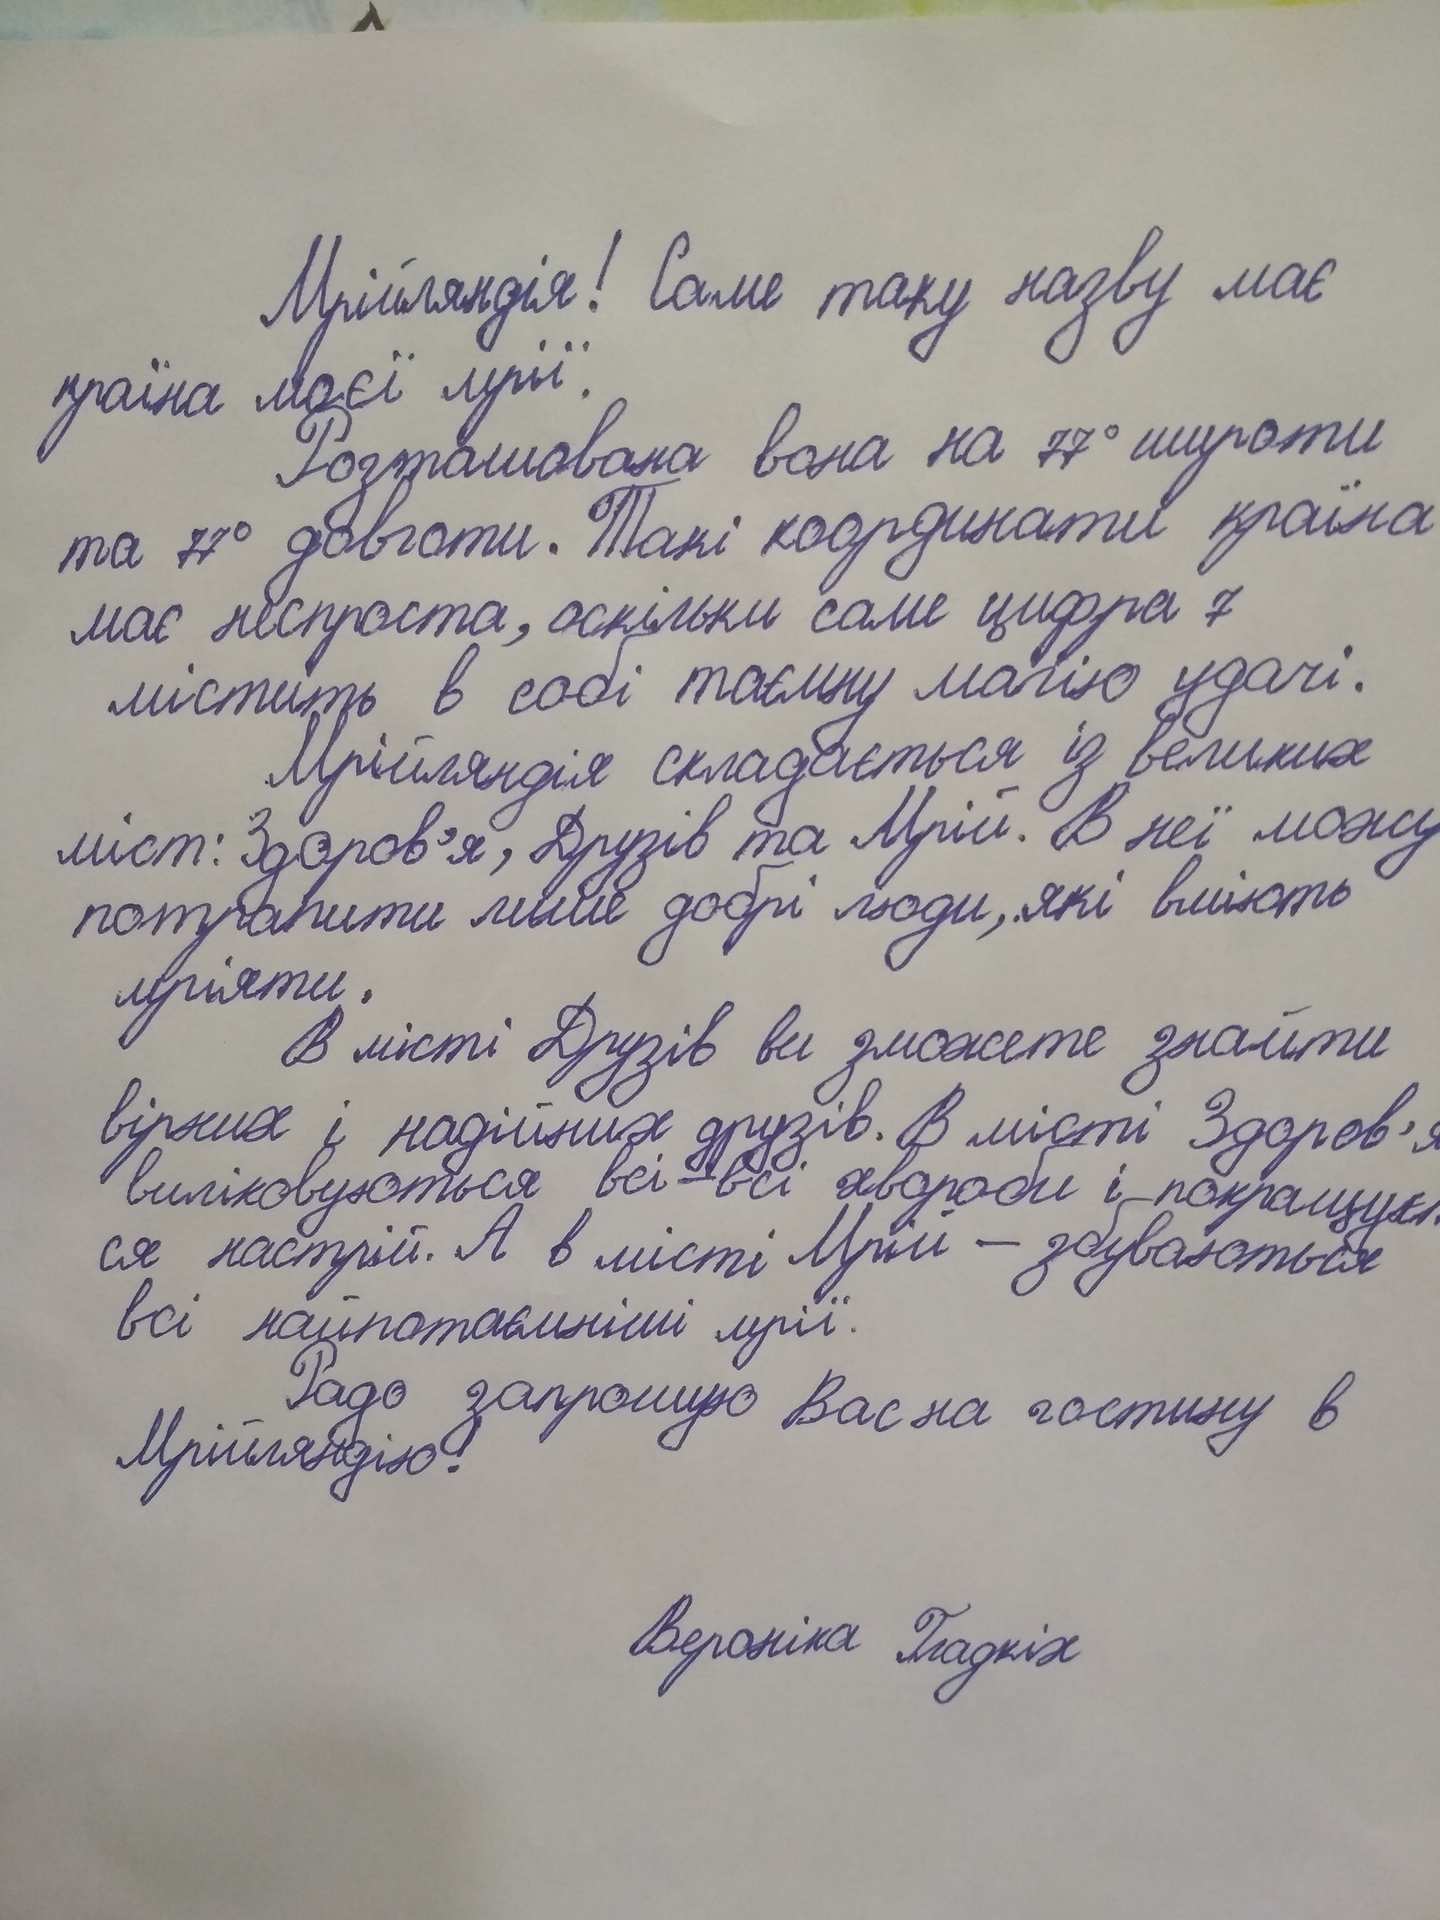 Мрійляндія! Саме таку назву має
країна моєї мрії.
Розташована вона на 77° широти
та 77° довготи. Такі координати країна
має неспроста, оскільки саме цифра 7
містить в собі таємну магію удачі.
Мрійляндія складається із великих
міст: Здоров'я, Друзів та Мрій. В неї можу
потрапити лише добрі люди, які вміють
мріяти.
В місті Друзів ви зможете знайти
вірних і надійних друзів. В місті Здоров'я
виліковуються всі-всі хвороби і покращуєт
ся настрій. А в місті Мрій – збуваються
всі найпотаємніші мрії.
Радо запрошую Вас на гостину в
Мрійляндію!
Вероніка Гладкіх